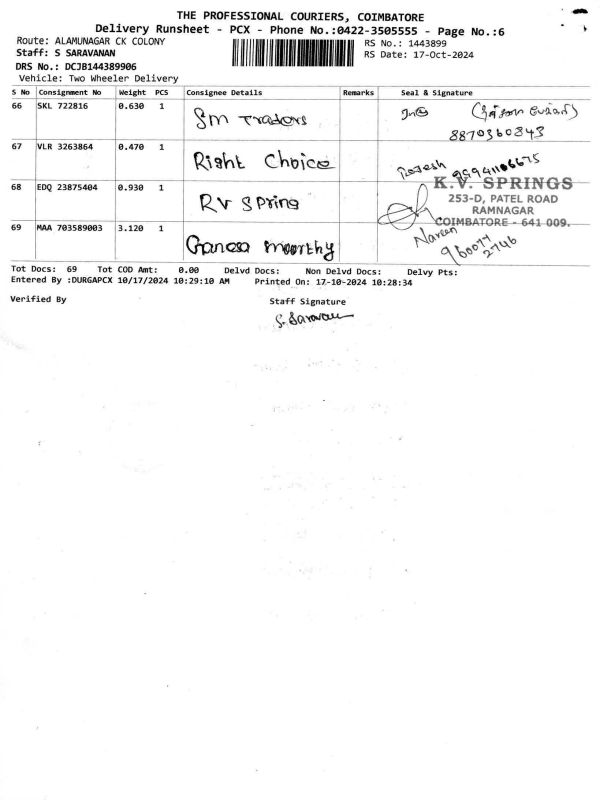 THE PROFESSIONAL COURIERS, COIMBATORE
Delivery Runsheet - PCX - Phone No.:0422-3505555 - Page No.:6
Route: ALAMUNAGAR CK COLONY
RS No.: 1443899
Staff: S SARAVANAN
RS Date: 17-Oct-2024
DRS No.: DCJB144389906
Vehicle: Two Wheeler Delivery
S No Consignment No Weight PCS Consignee Details Remarks Seal & Signature
66 SKL 722816 0.630 1 Sm Traders
8870360343
67 VLR 3263864 0.470 1 Right Choice Rajesh
68 EDQ 23875404 0.930 1 RV Spring
K.V. SPRINGS
253-D, PATEL ROAD
RAMNAGAR
COIMBATORE - 641 009.
69 MAA 703589003 3.120 1 Ganesa moorthy Naveen
960077
2746
Tot Docs: 69 Tot COD Amt: 0.00 Delvd Docs: Non Delvd Docs: Delvy Pts:
Entered By :DURGAPCX 10/17/2024 10:29:10 AM Printed On: 17-10-2024 10:28:34
Verified By
Staff Signature
S. Saravan